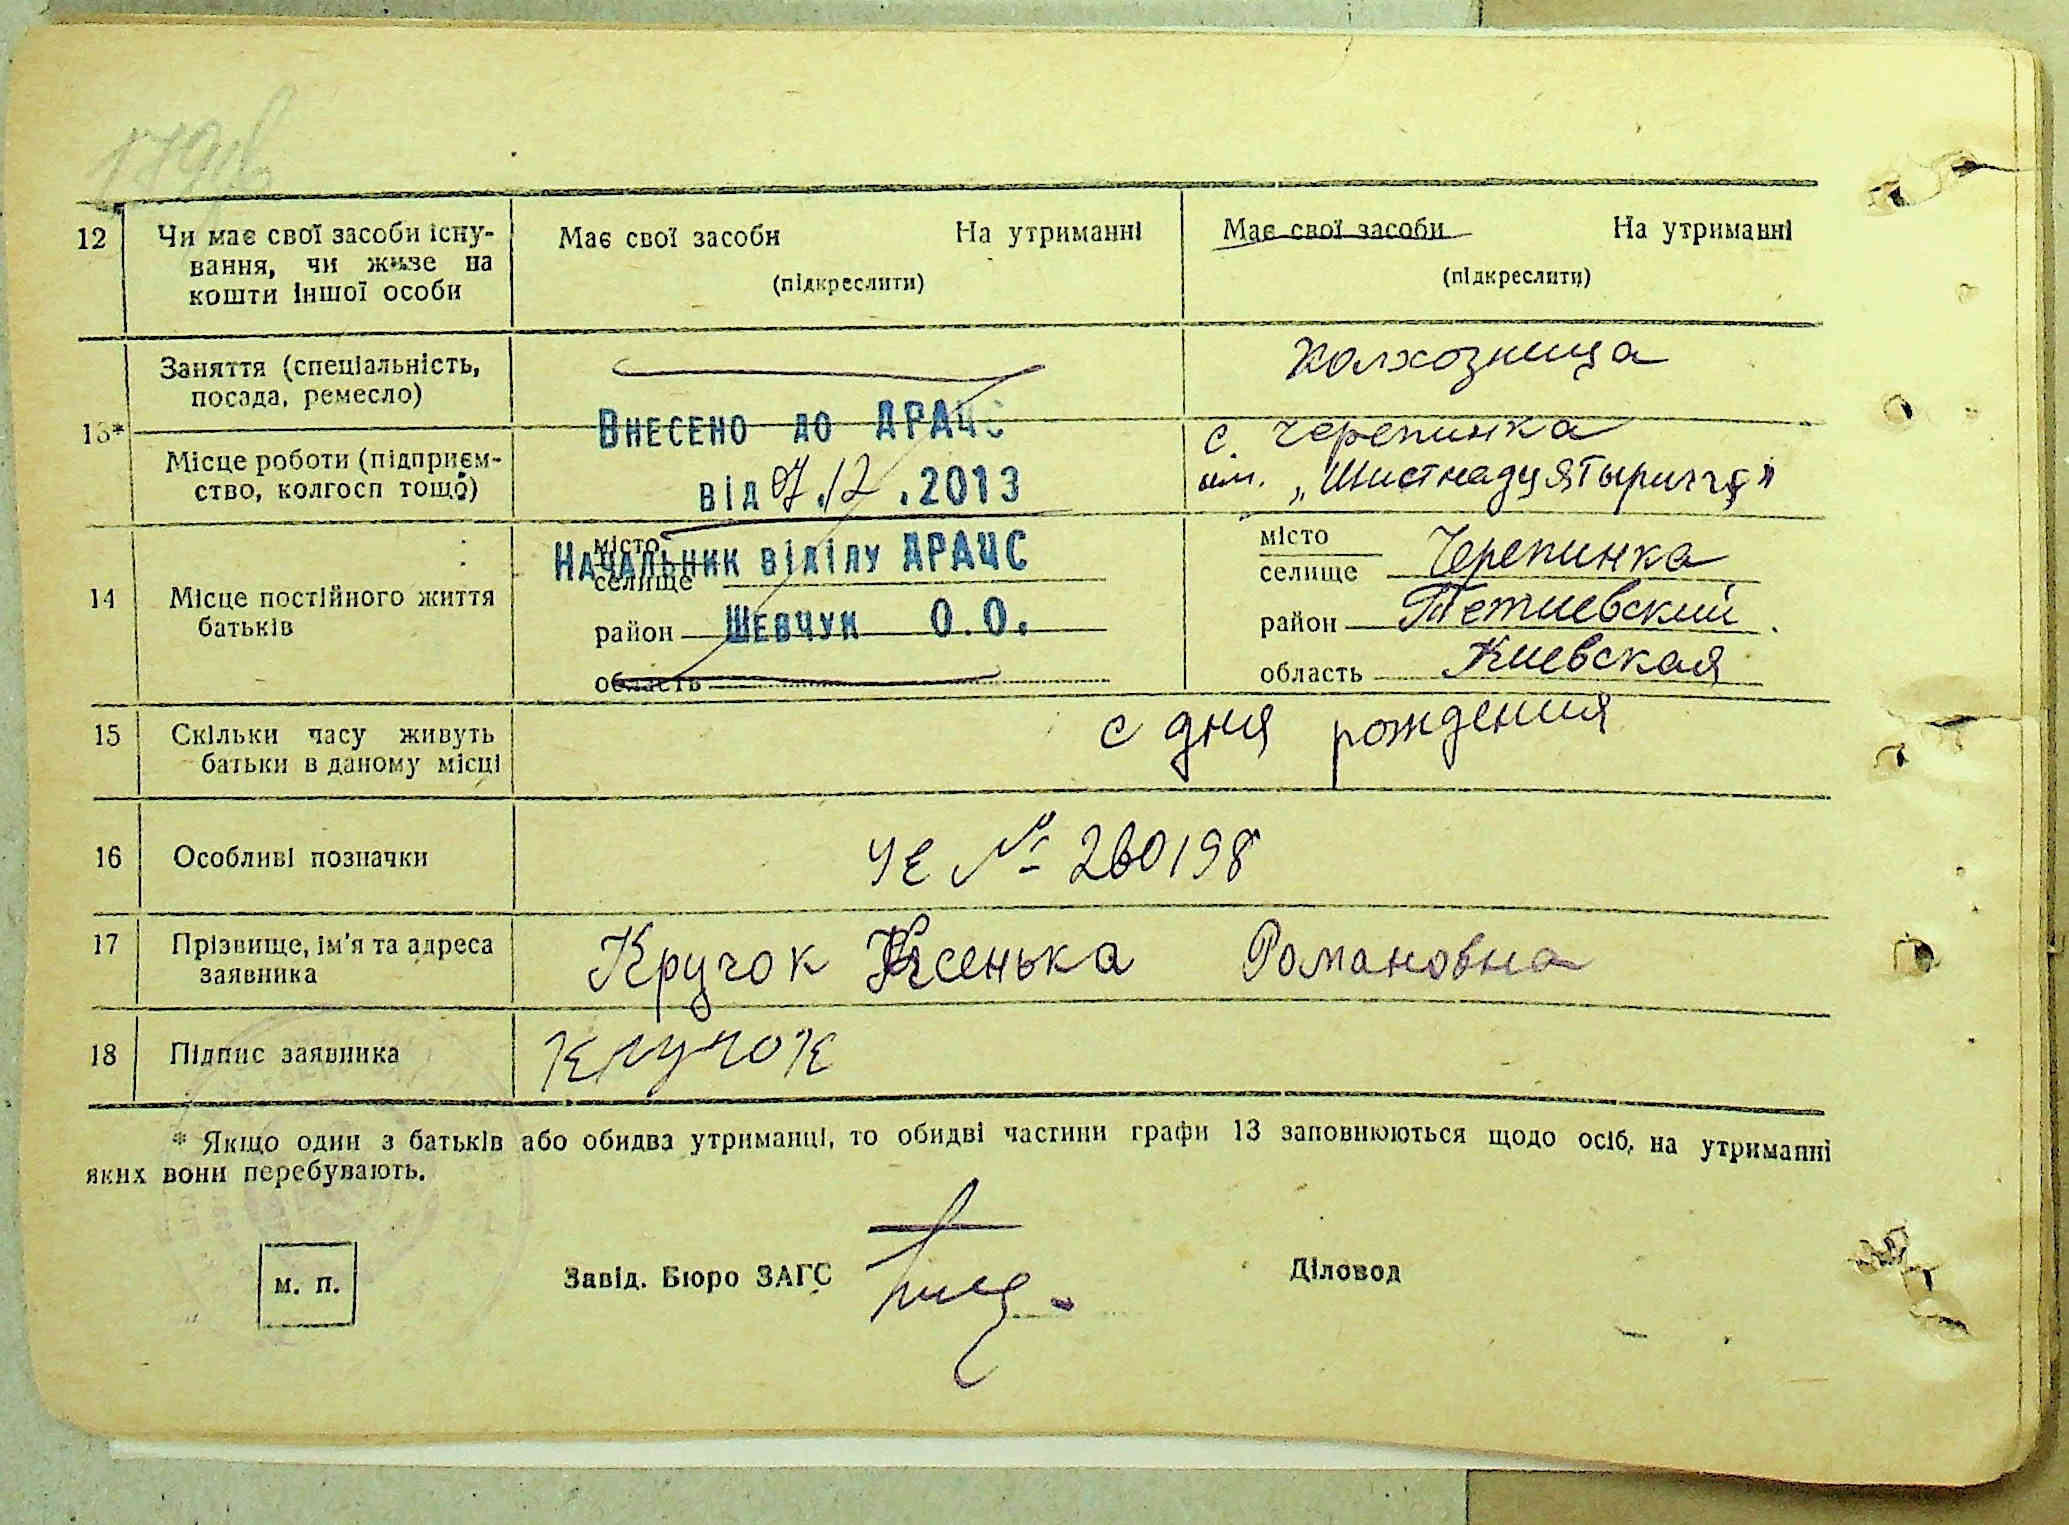 12 Чи має свої засоби існу- Має свої засоби На утриманні Має свої засоби На утриманні
вання, чи живе на (підкреслити) (підкреслити)
кошти іншої особи
Заняття (спеціальність, Колхозница
посада, ремесло)
Внесено до ДРАЦС
13* с. Черепинка
Місце роботи (підприєм- им. „Шистнадцятыриччя"
ство, колгосп тощо)
від 7.12.2013
місто місто Черепинка
Начальник віділу ДРАЦС
селище селище
14 Місце постійного життя
батьків
район Шевчук О.О. район Тетиевский
область область Киевская
15 Скільки часу живуть с дня рождения
батьки в даному місці
16 Особливі позначки ЧЕ № 260198
17 Прізвище, ім'я та адреса Кручок Ксенька Романовна
заявника
18 Підпис заявника Кручок
* Якщо один з батьків або обидва утриманці, то обидві частини графи 13 заповнюються щодо осіб, на утриманні
яких вони перебувають.
м. п. Завід. Бюро ЗАГС Діловод